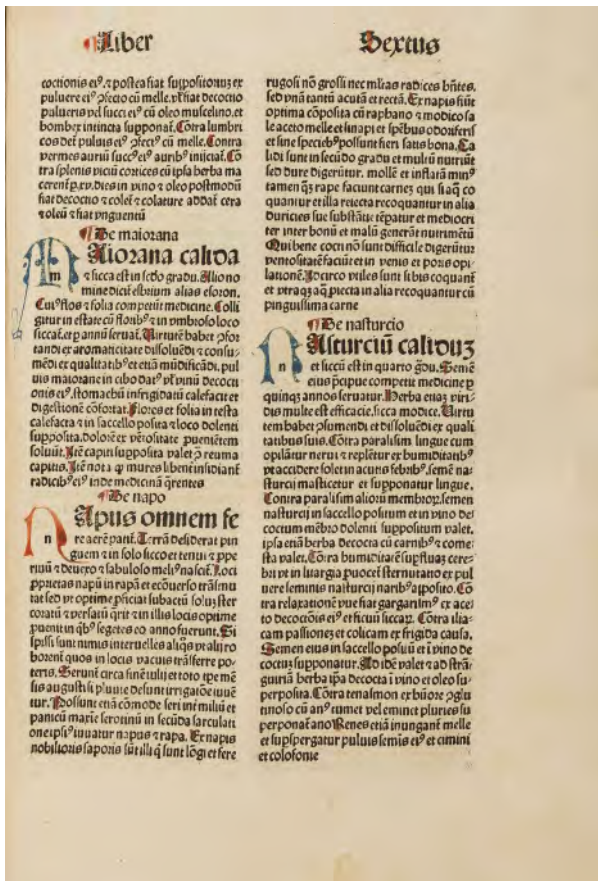 Liber Sextus
coctionis ei⁹. ⁊ postea fiat suppositoriuz ex
puluere ei⁹ ꝯfectio cū melle. vł fiat decoctio
pulueris vel succi ei⁹ cū oleo muscelino. et
bombex intincta supponat᷑. Cōtra lumbri
cos det᷑ puluis ei⁹ ꝯfect⁹ cū melle. Contra
vermes auriū succ⁹ ei⁹ aurib⁹ iniiciat᷑. Cō
tra splenis viciū cortices cū ipsa herba ma
cerent᷑ p.xv. dies in vino ⁊ oleo postmodū
fiat decoctio ⁊ colet᷑ ⁊ colature addat᷑ cera
⁊ oleū ⁊ fiat vnguentū
¶ De maiorana
m Aiorana calida
⁊ sicca est in scdo gradu. Alio no
mine dicit᷑ esbrium alias esoron.
Cui⁹ flos ⁊ folia competūt medicine. Colli
gitur in estate cū florib⁹ ⁊ in vmbroso loco
siccat᷑. et p annū seruat᷑. Uirtutē habet ꝯfor
tandi ex aromaticitate dissoluēdi ⁊ consu-
mēdi ex qualitatib⁹ et etiā mūdificādi. pul
uis maiorane in cibo dat⁹ vł vinū decocti
onis ei⁹. stomachū infrigidatū calefacit et
digestionē cōfortat. Flores et folia in testa
calefacta ⁊ in saccello posita ⁊ loco dolenti
supposita. dolorē ex vētositate pueniētem
soluūt. Itē capiti supposita valet ꝓ reuma
capitis. Itē nota ꝙ mures libent᷑ insidiant᷑
radicib⁹ ei⁹ inde medicinā q̄rentes
¶ De napo
n Apus omnem fe
re aerē patit᷑. Terrā desiderat pin
guem ⁊ in solo sicco et tenui ⁊ ꝓpe
riuū ⁊ deuexo ⁊ sabuloso meli⁹ nascit᷑. Loci
ꝓprietas napū in rapā et ecōuerso trāsmu
tat sed vt optime ꝓficiat subactū soluz ster
coratū ⁊ versatū q̄rit ⁊ in illis locis optime
ꝓuenit in qb⁹ segetes eo anno fuerunt. Si
spissi sunt nimis interuelles aliq̄s vt alii ro
borent᷑ quos in locis vacuis trāsferre po-
teris. Serunt᷑ circa finē iulii et toto tꝑe mē
sis augusti si pluuie desunt irrigatiōe iuuē
tur. Possunt etiā cōmode seri int᷑ miliū et
panicū maxīe serotinū in secūda sarculati
one ipsi⁹ iuuatur napus ⁊ rapa. Ex napis
nobilioris saporis sūt illi q̄ sunt lōgi et fere
rugosi nō grossi nec mltas radices hn̄tes.
sed vnā tantū acutā et rectā. Ex napis fiūt
optima cōposita cū raphano ⁊ modico sa
le aceto melle et sinapi et spēbus odoriferis
et sine specieb⁹ possunt fieri satis bona. Ca
lidi sunt in secūdo gradu et multū nutriūt
sed dure digerūtur. mollē et inflatā min⁹
tamen q̄z rape faciunt carnez qui si aq̄ co
quantur et illa reiecta recoquantur in alia
duricies sue substātie tēperatur et mediocri
ter inter bonū et malū generāt nutrimētū
Qui bene cocti nō sunt difficile digerūtur
ventositatē faciūt et in venis et poris opi-
lationē. Idcirco vtiles sunt si bis coquant᷑
et vtraq̄z aq̄ ꝓiecta in alia recoquantur cū
pinguissima carne
¶ De nasturcio
n Asturciū caliduz
et siccū est in quarto g̊du. Semē
eius p̄cipue competit medicine ꝑ
quinq̄z annos seruatur. Herba etiaz viri-
dis multe est efficacie. sicca modice. Uirtu
tem habet ꝯsumendi et dissoluēdi ex quali
tatibus suis. Cōtra paralisim lingue cum
opilātur nerui ⁊ replētur ex humiditatib⁹
vt accidere solet in acutis febrib⁹. semē na-
sturcij masticetur et supponatur lingue.
Contra paralisim alioꝝ membroꝝ. semen
nasturcij in saccello positum et in vino de-
coctum mēbro dolenti suppositum valet.
ipsa etiā herba decocta cū carnib⁹ ⁊ come-
sta valet. Cōtra humiditatē suꝑfluaz cere-
bri vt in litargia ꝓuocet᷑ sternutatio ex pul
uere seminis nasturcij narib⁹ apposito. Cō
tra relaxationē vue fiat gargarism⁹ ex ace
to decoctiōis ei⁹ et ficuū siccaꝝ. Cōtra ilia-
cam passionez et colicam ex frigida causa.
Semen eius in saccello positū et ī vino de
coctuz supponatur. Ad idē valet ⁊ ad strā-
guriā herba ip̄a decocta ī vino et oleo su-
perposita. Cōtra tenasmon ex hūore ꝯglu
tinoso cū an⁹ tumet vel eminet pluries su
perponat᷑ ano Renes etiā inungant᷑ melle
et supspergatur puluis semis ei⁹ et cimini
et colofonie